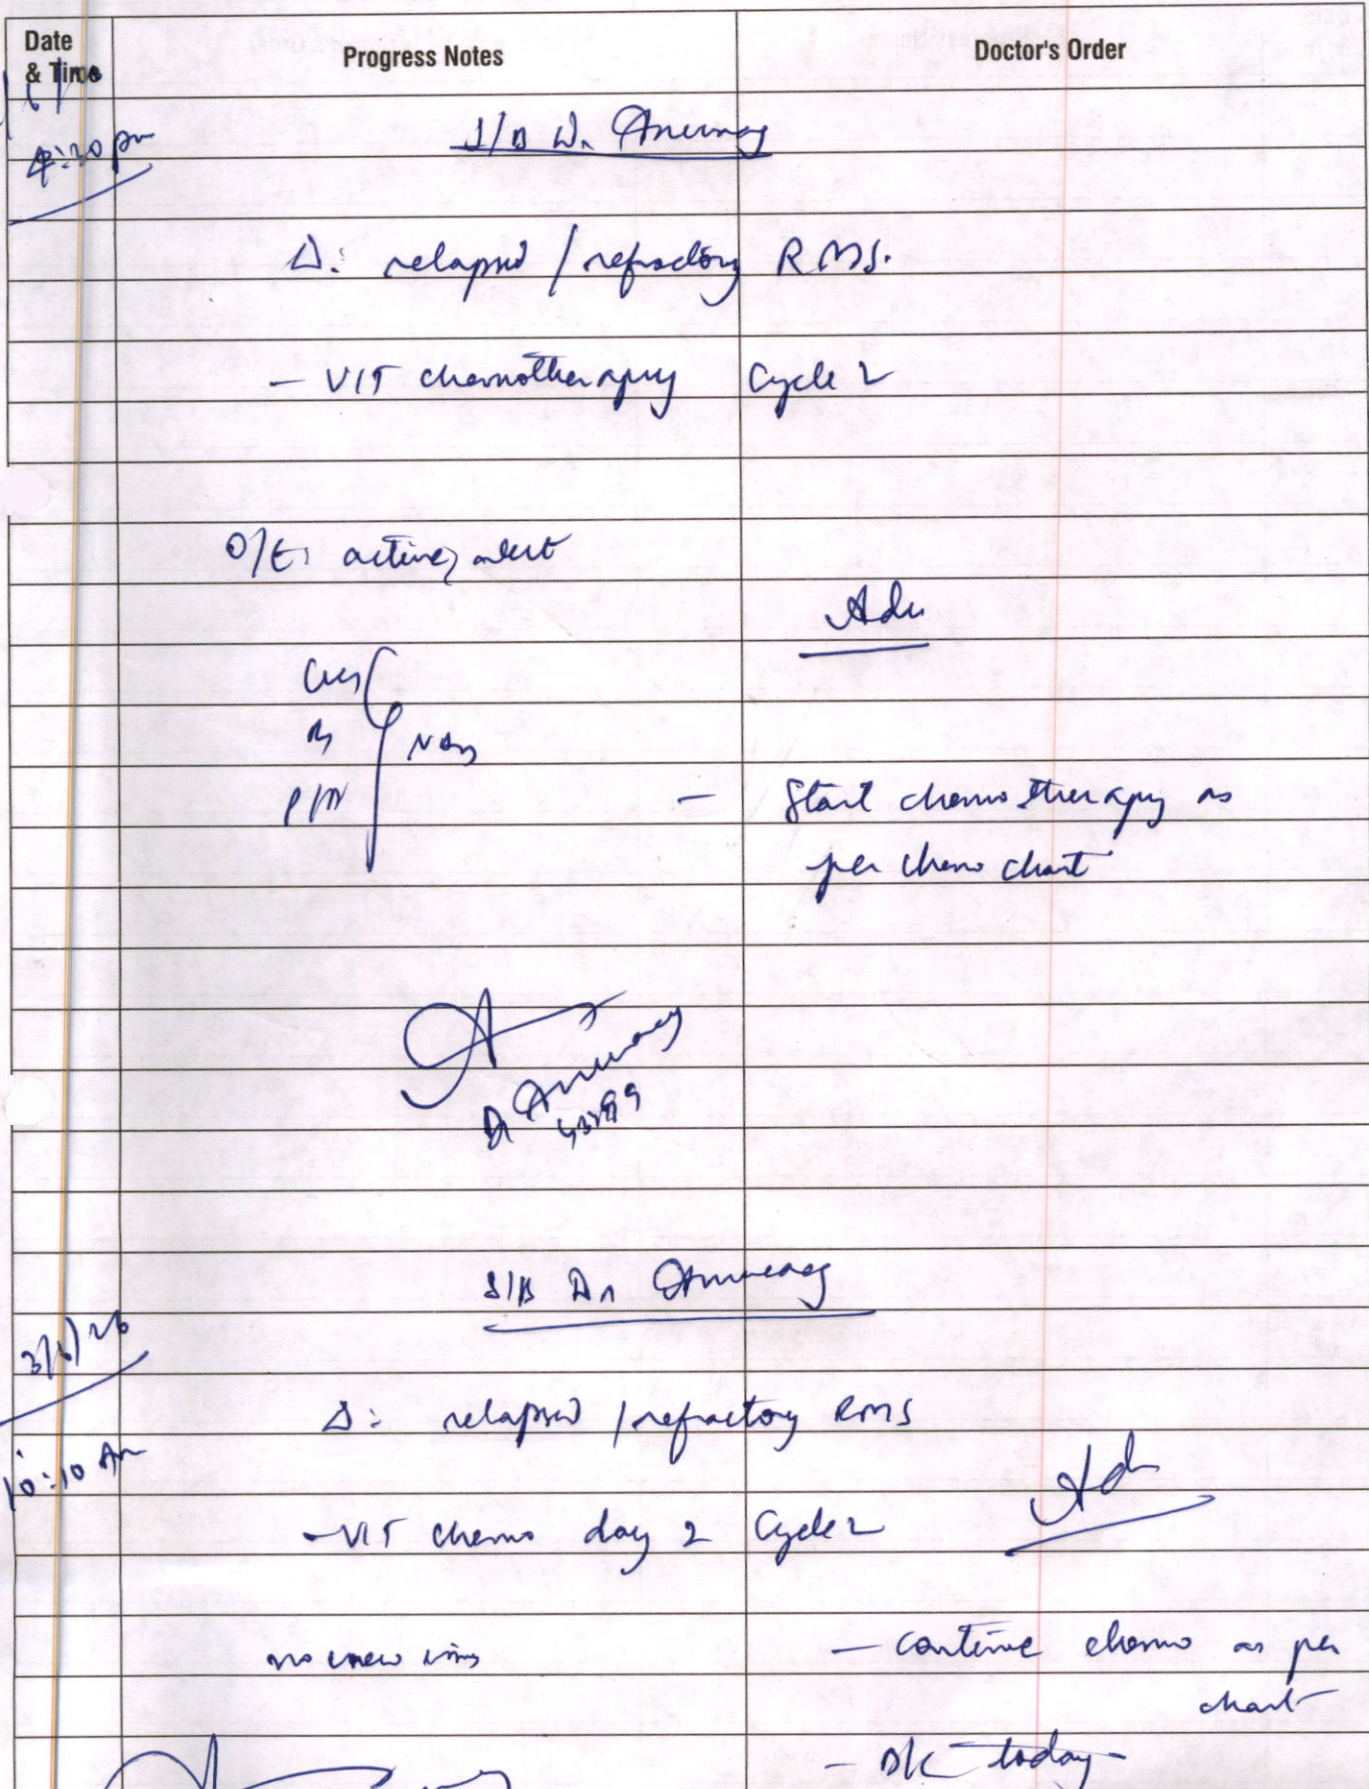 Date
& Time
Progress Notes
Doctor's Order
4:30 pm
S/B Dr Anurag
Δ: relapsed / refractory RMS.
- VIT chemotherapy Cycle 2
O/E: active, alert
Adv
CVS
RS
P/A
NAD
- Start chemotherapy as
per chemo chart
Dr Anurag
S/B Dr Anurag
3/1/26
10:10 Am
Δ: relapsed / refractory RMS
Adv
- VIT chemo day 2 Cycle 2
no new issues
- continue chemo as per
chart
- D/C today